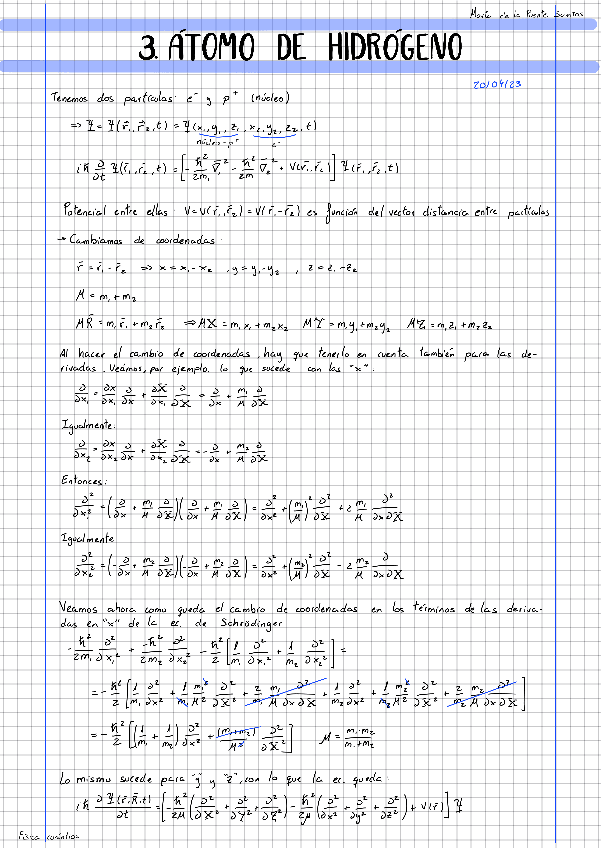 María de la Puente Santos
3. ÁTOMO DE HIDRÓGENO
20/04/23
Tenemos dos partículas: e⁻ y p⁺ (núcleo)
⇒ Ψ = Ψ(r̄₁, r̄₂, t) = Ψ(x₁, y₁, z₁, x₂, y₂, z₂, t)
núcleo - p⁺ e⁻
iℏ ∂/∂t Ψ(r̄₁, r̄₂, t) = [-ℏ²/2m₁ ∇̄₁² - ℏ²/2m ∇̄₂² + V(r̄₁, r̄₂)] Ψ(r̄₁, r̄₂, t)
Potencial entre ellas: V = V(r̄₁, r̄₂) = V(r̄₁ - r̄₂) es función del vector distancia entre partículas
→ Cambiamos de coordenadas:
r̄ = r̄₁ - r̄₂ ⇒ x = x₁ - x₂ , y = y₁ - y₂ , z = z₁ - z₂
M = m₁ + m₂
MR̄ = m₁r̄₁ + m₂r̄₂ ⇒ MX = m₁x₁ + m₂x₂ MY = m₁y₁ + m₂y₂ MZ = m₁z₁ + m₂z₂
Al hacer el cambio de coordenadas, hay que tenerlo en cuenta también para las de-
rivadas. Veamos, por ejemplo, lo que sucede con las "x".
∂/∂x₁ = ∂x/∂x₁ ∂/∂x + ∂X/∂x₁ ∂/∂X = ∂/∂x + m₁/M ∂/∂X
Igualmente:
∂/∂x₂ = ∂x/∂x₂ ∂/∂x + ∂X/∂x₂ ∂/∂X = -∂/∂x + m₂/M ∂/∂X
Entonces:
∂²/∂x₁² = (∂/∂x + m₁/M ∂/∂X)(∂/∂x + m₁/M ∂/∂X) = ∂²/∂x² + (m₁/M)² ∂²/∂X² + 2 m₁/M ∂²/∂x∂X
Igualmente
∂²/∂x₂² = (-∂/∂x + m₂/M ∂/∂X)(-∂/∂x + m₂/M ∂/∂X) = ∂²/∂x² + (m₂/M)² ∂²/∂X² - 2 m₂/M ∂/∂x∂X
Veamos ahora como queda el cambio de coordenadas en los términos de las deriva-
das en "x" de la ec. de Schrödinger
-ℏ²/2m₁ ∂²/∂x₁² + -ℏ²/2m₂ ∂²/∂x₂² = -ℏ²/2 [1/m₁ ∂²/∂x₁² + 1/m₂ ∂²/∂x₂²] =
= -ℏ²/2 [1/m₁ ∂²/∂x² + 1/m₁ m₁²/M² ∂²/∂X² + 2/m₁ m₁/M ∂²/∂x∂X + 1/m₂ ∂²/∂x² + 1/m₂ m₂²/M² ∂²/∂X² + 2/m₂ m₂/M ∂²/∂x∂X]
= -ℏ²/2 [(1/m₁ + 1/m₂) ∂²/∂x² + (m₁+m₂)/M² ∂²/∂X²] μ = m₁·m₂/m₁+m₂
Lo mismo sucede para "y" y "z", con lo que la ec. queda:
iℏ ∂Ψ(r̄, R̄, t)/∂t = [-ℏ²/2M (∂²/∂X² + ∂²/∂Y² + ∂²/∂Z²) - ℏ²/2μ (∂²/∂x² + ∂²/∂y² + ∂²/∂z²) + V(r̄)] Ψ
Física cuántica